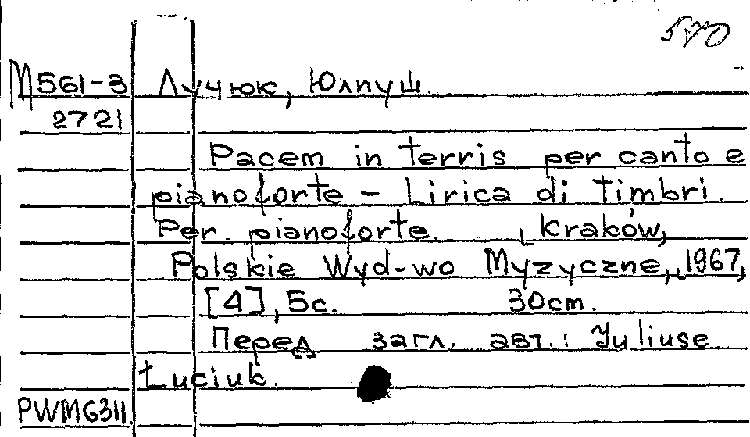 570
М561-3 Лучюк, Юлпуш
2721
Pacem in terris per canto e
pianoforte - Lirica di timbri.
Per. pianoforte. Kraków,
Polskie Wyd-wo Myzyczne, 1967,
[4], 5c. 30cm.
Перед загл. авт.: Juliuse
Łuciuk.
PWM6311